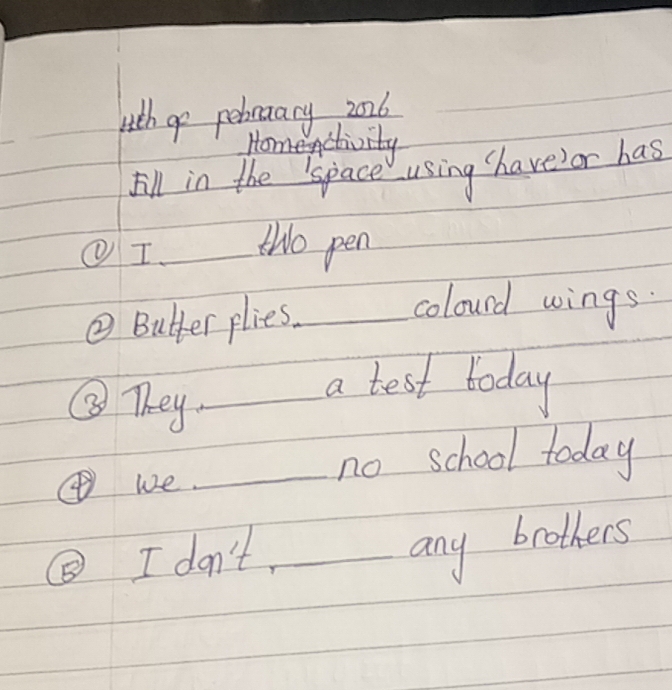 11th of february 2026
Home Activity
Fill in the 'space' using 'have' or has
① I. ______ two pen
② Butterflies. ______ colourd wings.
③ They. ______ a test today
④ we. ______ no school today
⑤ I don't. ______ any brothers